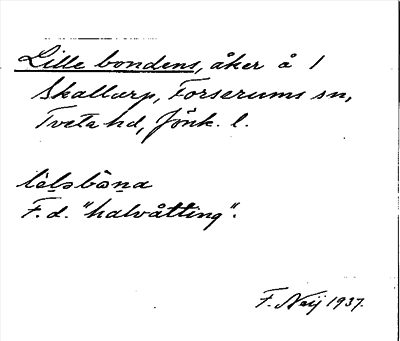 Lille bondens, åker å 1
Skallarp, Forserums sn,
Tveta hd, Jönk. l.
lèlsbòna
F. d. "halvåtting".
F. Neij 1937.